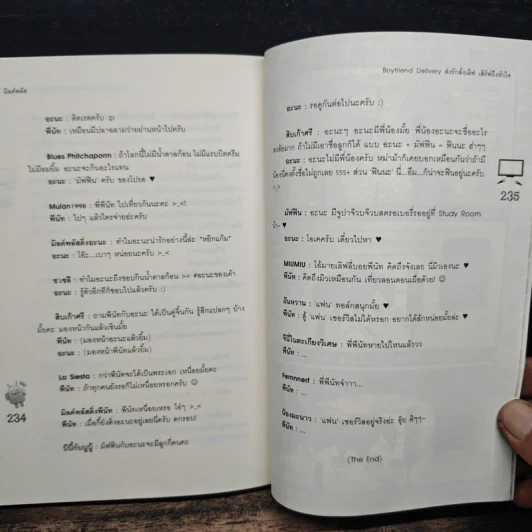 มิลค์พลัส
อะนะ : ติดเรตครับ :p
พีนัท : เหมือนมีปลาฉลามว่ายผ่านหน้าไปครับ
Blues Phitchaporn : ถ้าโลกนี้ไม่มีน้ำตาลก้อน ไม่มีแรบบิตครีม
ไม่มีอมยิ้ม อะนะจะกินอะไรแทน
อะนะ : 'มัฟฟิน' ครับ ของโปรด ♥
Mulan1998 : พี่พีนัท ไปเที่ยวกันนะคะ >_<
พีนัท : ไปๆ แล้วใครจ่ายอ่ะครับ
มิลค์พลัสติ่งอะนะ : ทำไมอะนะน่ารักอย่างนี้ล่ะ "หยิกแก้ม"
อะนะ : โอ๊ะ...เบาๆ หน่อยนะครับ >_<
ซาซลี : ทำไมอะนะถึงชอบกินน้ำตาลก้อน >< #อะนะของเค้า
อะนะ : รู้ตัวอีกทีก็ชอบไปแล้วครับ :)
สิบเก้าศรี : ถามพีนัทกับอะนะ ได้เป็นคู่จิ้นกัน รู้สึกแปลกๆ บ้าง
มั้ยคะ มองหน้ากันแล้วเขินมั้ย
พีนัท : (มองหน้าอะนะแล้วยิ้ม)
อะนะ : (มองหน้าพีนัทแล้วยิ้ม)
La Siesta : กว่าพีนัทจะได้เป็นพระเอก เหนื่อยมั้ยคะ
พีนัท : ถ้าทุกคนยังรอก็ไม่เหนื่อยหรอกครับ ☺
มิลค์พลัสติ่งพีนัท : พีนัทเหนื่อยเหรอ โอ๋ๆ >_<
พีนัท : เมื่อกี้ยังติ่งอะนะอยู่เลยนี่ครับ ตกรอบ!
นินีกับนูนู๋ : มัฟฟินกับอะนะจะมีลูกกี่คนคะ
234
Boyfriend Delivery ส่งรักสั่งเลิฟ เสิร์ฟถึงหัวใจ
อะนะ : รอดูกันต่อไปนะครับ :)
สิบเก้าศรี : อะนะๆ อะนะมีพี่น้องมั้ย พี่น้องอะนะจะชื่ออะไร
สงสัยมาก ถ้าไม่มีเอาชื่อลูกก็ได้ แบบ อะนะ + มัฟฟิน = ฟินนะ ฮ่าๆๆ
อะนะ : อะนะไม่มีพี่น้องครับ หม่าม้าก็เคยบอกเหมือนกันว่าถ้ามี
น้องนี่คงตั้งชื่อไม่ถูกเลย 555+ ส่วน 'ฟินนะ' นี่...อืม...ก็น่าจะฟินอยู่นะครับ
^.^
235
มัฟฟิน : อะนะ มีจูปาจุ๊บจุ๊บรสสตรอเบอรี่รออยู่ที่ Study Room
♥
อะนะ : โอเคครับ เดี๋ยวไปหา ♥
MIUMIU : ไอ้มายเลิฟลี่บอยพีนัท คิดถึงจังเลย นี่มิวเองนะ ♥
พีนัท : คิดถึงมิวเหมือนกัน เที่ยวลอนดอนเผื่อด้วย! ☺
ลันหวาน : 'แฟน' ทอล์กสนุกมั้ย ♥
พีนัท : สู้ 'แฟน' เซอร์วิสไม่ได้หรอก อยากได้สักหน่อยมั้ยล่ะ ♥
จินี่ในตะเกียงวิเศษ : พี่พีนัทหายไปไหนแล้ววว
พีนัท : ...
Fernnnert : พี่พีนัทจ๋าาา...
พีนัท : ...
น้องมะนาว : 'แฟน' เซอร์วิสอยู่จริงอ่ะ อุ้ย คิๆๆ~
พีนัท : ...
(The End)